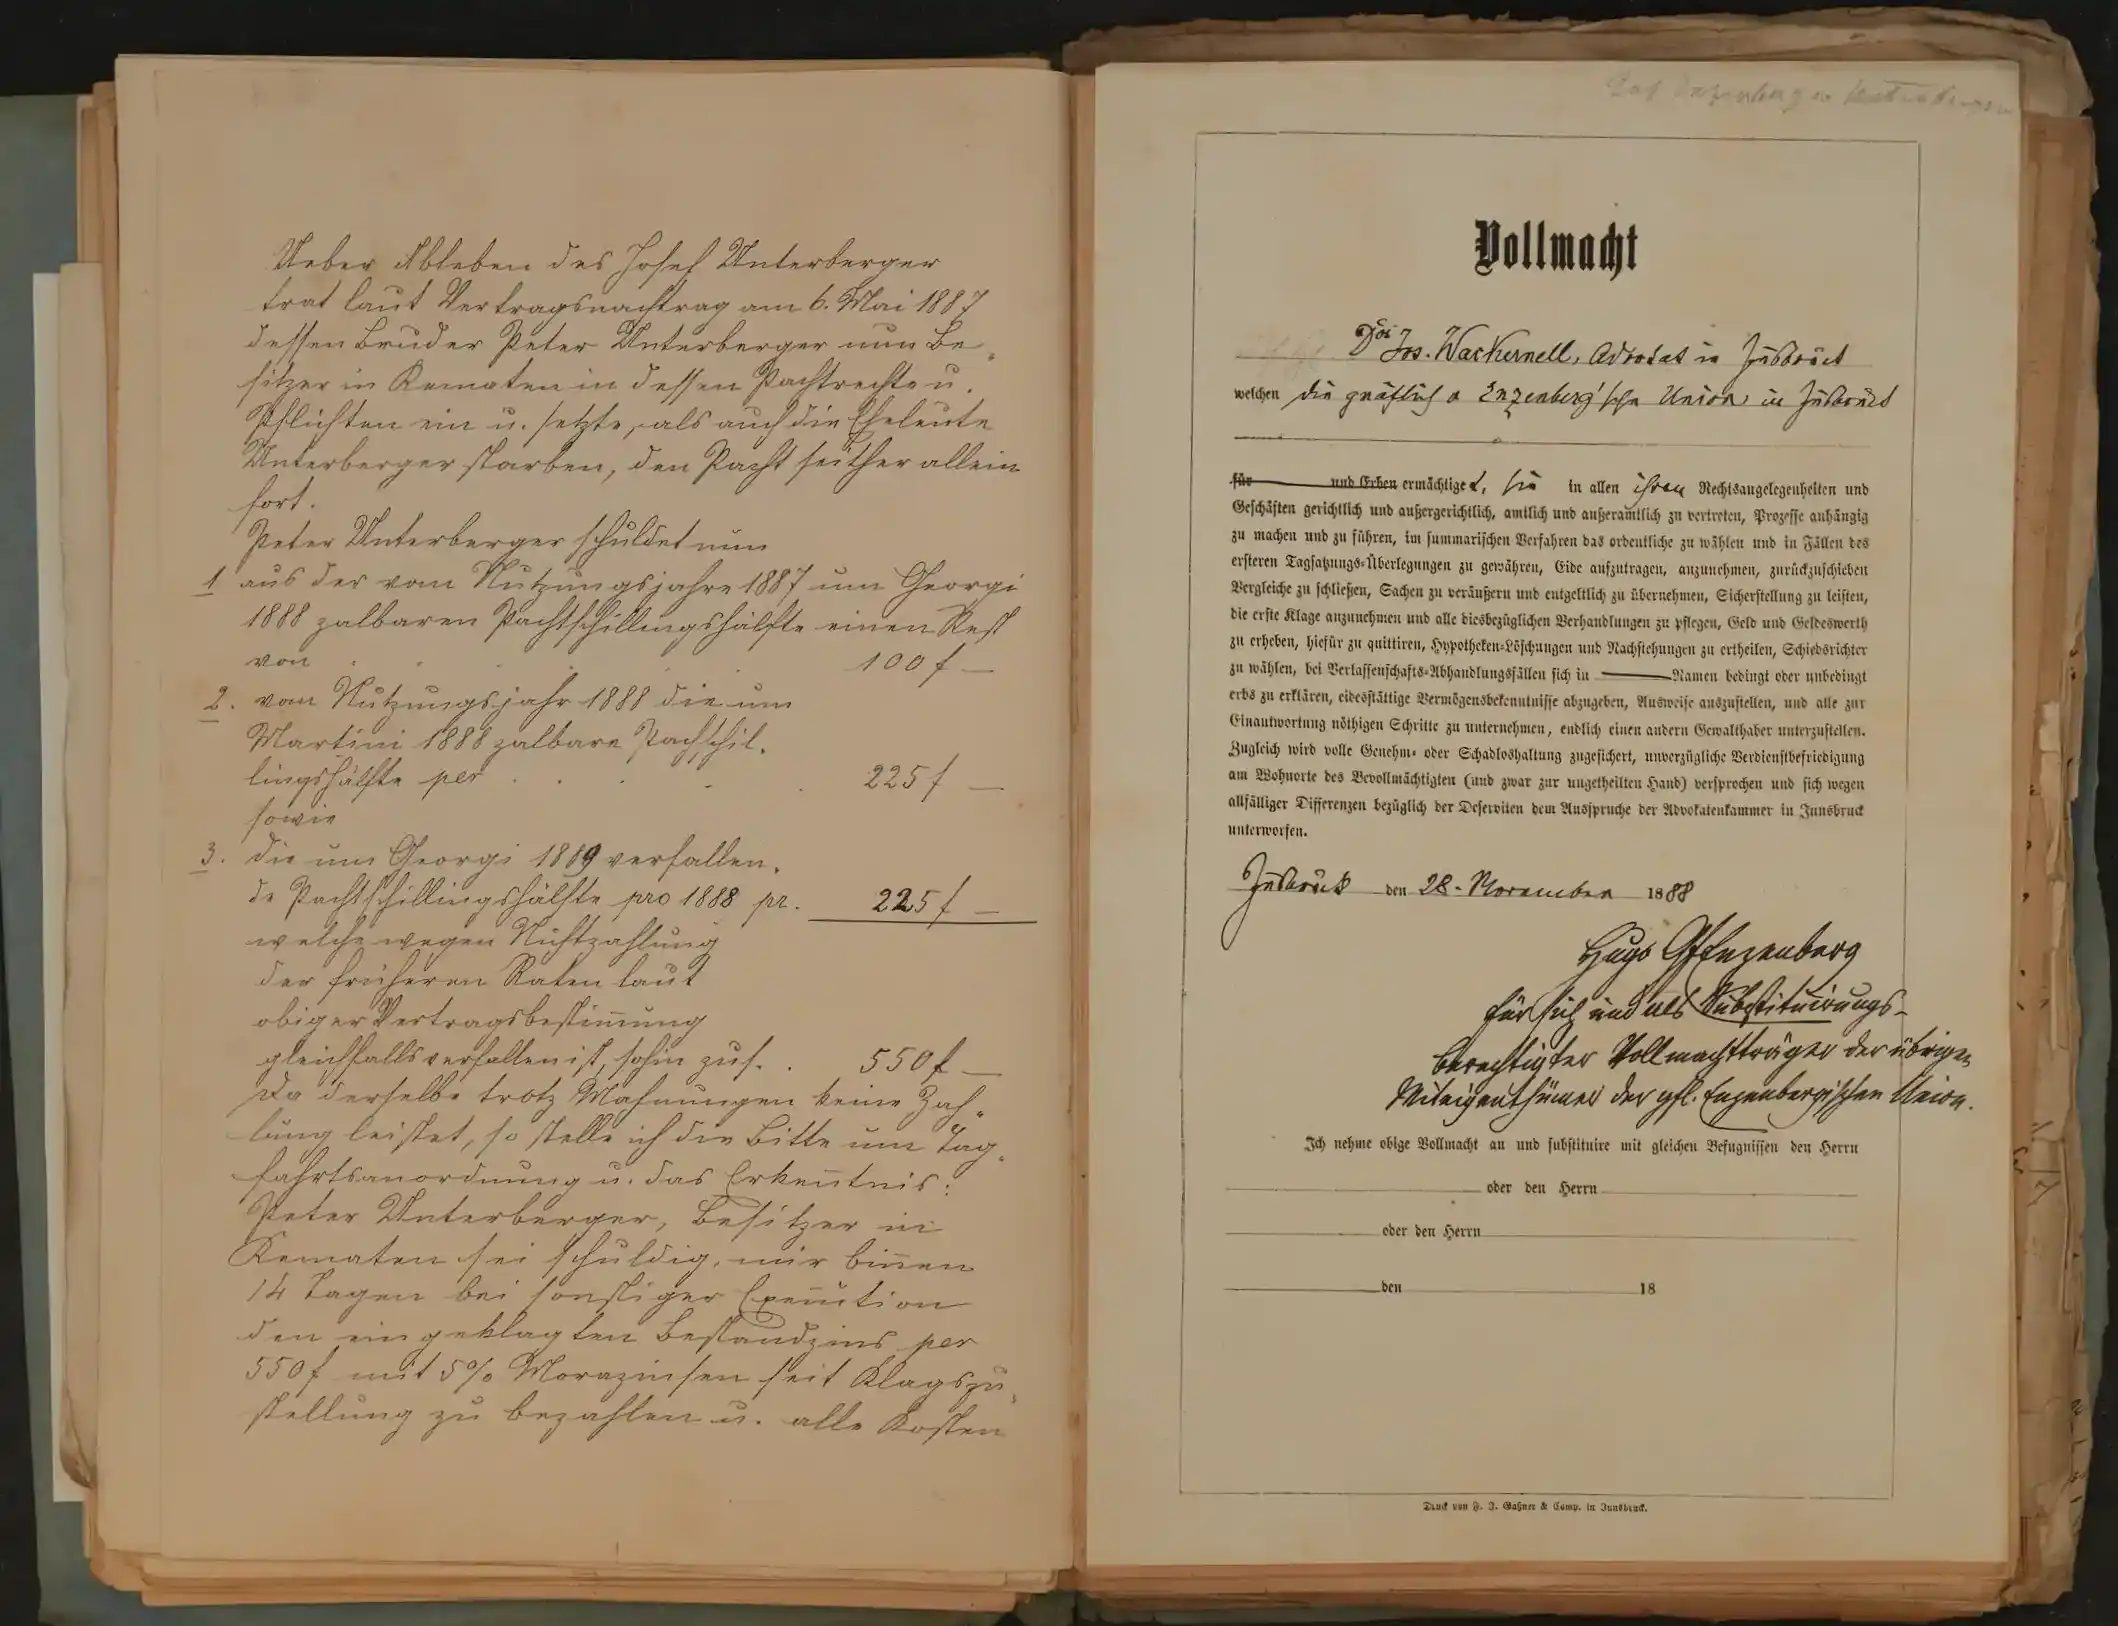 Ueber Ableben des Josef Unterberger
trat laut Vertragsnachtrag am 6. Mai 1887
dessen Bruder Peter Unterberger nun Be-
sitzer in Kematen in dessen Pachtrechte u.
Pflichten ein u. setzte, als auch die Eheleute
Unterberger starben, den Pacht seither allein
fort.
Peter Unterberger schuldet nun
1 aus der vom Nutzungsjahre 1887 um Georgi
1888 zalbaren Pachtschillingshälfte einen Rest
von . . . . . 100 f —
2. vom Nutzungsjahr 1888 die um
Martini 1888 zalbare Pachtschil-
lingshälfte per . . . . . 225 f —
sowie
3. die um Georgi 1889 verfallen-
de Pachtschillingshälfte pro 1888 pr. 225 f —
welche wegen Nichtzahlung
der früheren Raten laut
obiger Vertragsbestim̅ung
gleichfalls verfallen ist, sohin zus. . 550 f —
Da derselbe trotz Mahnungen keine Zah-
lung leistet, so stelle ich die Bitte um Tag-
fahrtsanordnung u. das Erken̅tnis:
Peter Unterberger, Besitzer in
Kematen sei schuldig, mir bin̅en
14 Tagen bei sonstiger Execution
den eingeklagten Bestandzins per
550 f mit 5% Morazinsen seit Klagszu-
stellung zu bezahlen u. alle Kosten
Vollmacht
Jos. Wackernell, Advokat in Innsbruck
welchen die gräflich v Enzenberg'sche Union in Innsbruck
für und Erben ermächtiget, sie in allen ihren Rechtsangelegenheiten und
Geschäften gerichtlich und außergerichtlich, amtlich und außeramtlich zu vertreten, Prozesse anhängig
zu machen und zu führen, im summarischen Verfahren das ordentliche zu wählen und in Fällen des
ersteren Tagsatzungs-Überlegungen zu gewähren, Eide aufzutragen, anzunehmen, zurückzuschieben
Vergleiche zu schließen, Sachen zu veräußern und entgeltlich zu übernehmen, Sicherstellung zu leisten,
die erste Klage anzunehmen und alle diesbezüglichen Verhandlungen zu pflegen, Geld und Geldeswerth
zu erheben, hiefür zu quittiren, Hypotheken-Löschungen und Nachstehungen zu ertheilen, Schiedsrichter
zu wählen, bei Verlassenschafts-Abhandlungsfällen sich in Namen bedingt oder unbedingt
erbs zu erklären, eidesstättige Vermögensbekenntnisse abzugeben, Ausweise auszustellen, und alle zur
Einantwortung nöthigen Schritte zu unternehmen, endlich einen andern Gewalthaber unterzustellen.
Zugleich wird volle Genehm- oder Schadloshaltung zugesichert, unverzügliche Verdienstbefriedigung
am Wohnorte des Bevollmächtigten (und zwar zur ungetheilten Hand) versprochen und sich wegen
allfälliger Differenzen bezüglich der Deserviten dem Ausspruche der Advokatenkammer in Innsbruck
unterworfen.
Innsbruck den 28. November 1888
Hugo Gf Enzenberg
für sich und als Substituirungs-
berechtigter Vollmachtträger der übrigen
Miteigenthümer der gfl. Enzenbergischen Union.
Ich nehme obige Vollmacht an und substituire mit gleichen Befugnissen den Herrn
oder den Herrn
oder den Herrn
den 18
Druck von F. J. Gaßner & Comp. in Innsbruck.